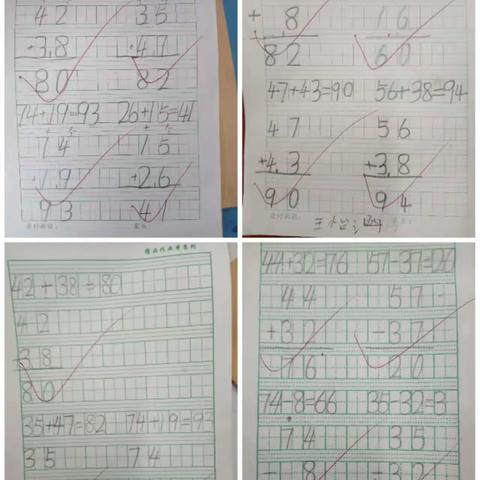 42 35
+3.8 +4.7
80 82
74+19=93 26+15=41
74 15
+1.9 +2.6
93 41
+ 8 16
82 60
47+43=90 56+38=94
47 56
+4.3 +3.8
90 94
精品作业薄系列
42+38=80
42
+38
80
35+47=82 74+19=93
35 74
44+32=76 57-37=20
44 57
+32 -37
76 20
74-8=66 35-32=3
74 35
- 8 -32